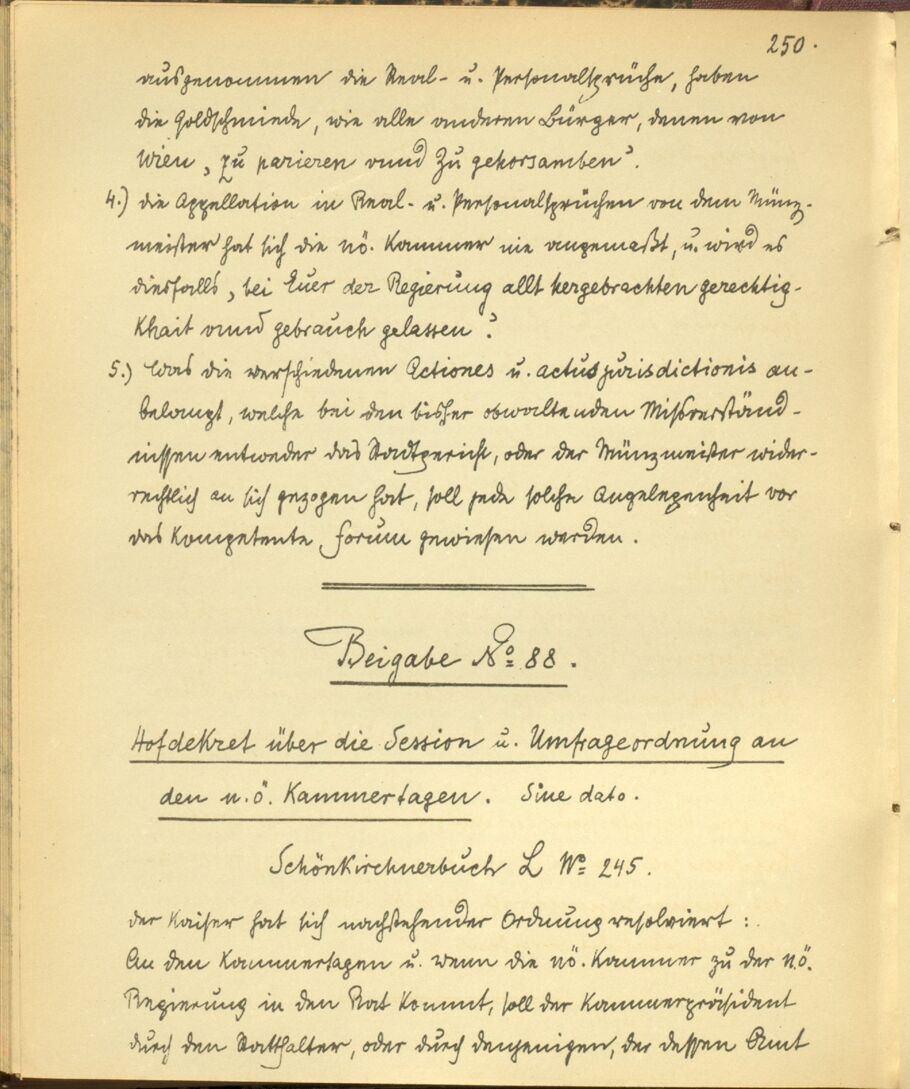 250.
ausgenommen die Real- u. Personalsprüche, haben
die Goldschmiede, wie alle anderen Bürger, denen von
Wien „zu parieren vnnd zu gehorsamben“.
4.) die Appellation in Real- u. Personalsprüchen von dem Münz-
meister hat sich die nö. Kammer nie angemaßt, u. wird es
diesfalls „bei Euer der Regierung allt hergebrachten gerechtig-
khait vnnd gebrauch gelassen“.
5.) Was die verschiedenen Actiones u. actus jurisdictionis an-
belangt, welche bei den bisher obwaltenden Missverständ-
nissen entweder das Stadtgericht, oder der Münzmeister wider-
rechtlich an sich gezogen hat, soll jede solche Angelegenheit vor
das kompetente forum gewiesen werden.
Beigabe No 88.
Hofdekret über die Session u. Umfrageordnung an
den n.ö. Kammertagen. Sine dato.
Schönkirchnerbuch L No 245.
der Kaiser hat sich nachstehender Ordnung resolviert:
An den Kammertagen u. wenn die nö. Kammer zu der n.ö.
Regierung in den Rat kommt, soll der Kammerpräsident
durch den Statthalter, oder durch denjenigen, der dessen Amt